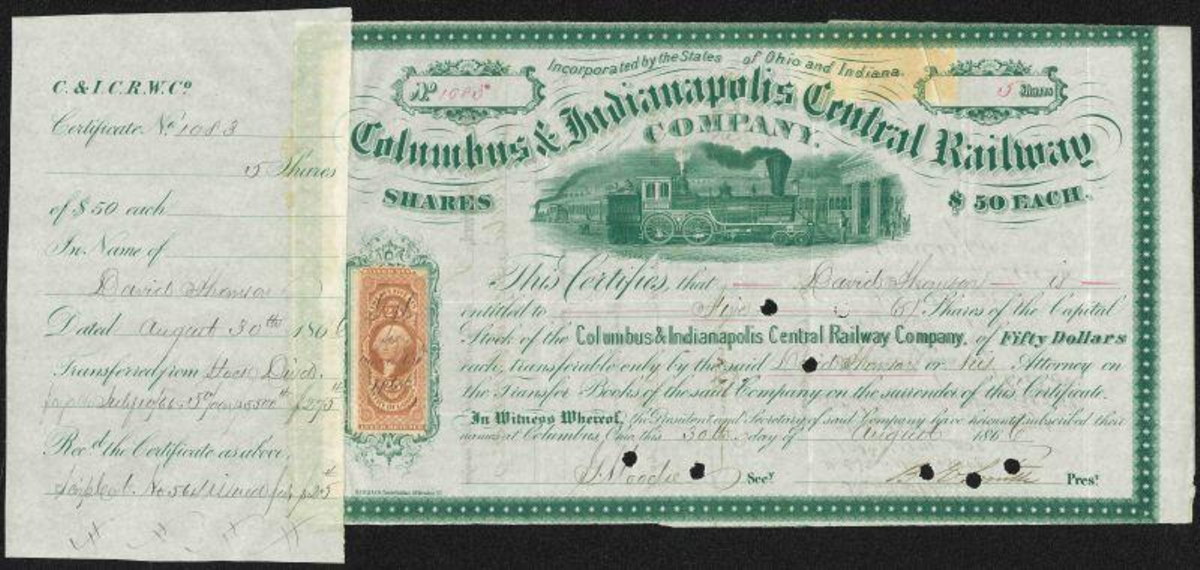 C. & I. C. R. W. Co
Certificate No 1083
5 Shares
of $50 each
In Name of
David Thomson
Dated August 30th 1866
Transferred from Stock Divd.
Recd the Certificate as above,
Incorporated by the States of Ohio and Indiana.
No 1083
5 Shares
Columbus & Indianapolis Central Railway
COMPANY.
SHARES
$50 EACH.
This Certifies, that David Thomson is
entitled to Five (5) Shares of the Capital
Stock of the Columbus & Indianapolis Central Railway Company, of Fifty Dollars
each, transferable only by the said David Thomson or his Attorney on
the Transfer Books of the said Company on the surrender of this Certificate.
In Witness Whereof, the President and Secretary of said Company have hereunto subscribed their
names at Columbus, Ohio this 30th day of August 1866
J. Moodie Secy
B. E. Smith Prest